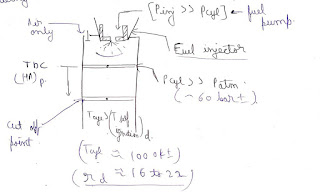 Air only
[Pinj >> Pcyl] ← fuel pump.
Fuel injector
TDC
(HA)p.
Pcyl >> Patm
(~ 60 bar ↑)
cut off point
Tcyl > (T self
)d.
(Tcyl ≈ 1000k↑)
(rd ≈ 16 to 22)